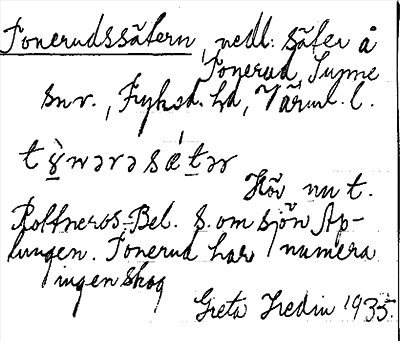 Tonerudssätern, nedl. säter å
Tonerud, Sunne
snr., Fryksd. hd, Värml. l.
Hör nu t.
Rottneros-Bel. S. om sjön Äp-
lungen. Tonerud har numera
ingen skog
Greta Hedin 1935.